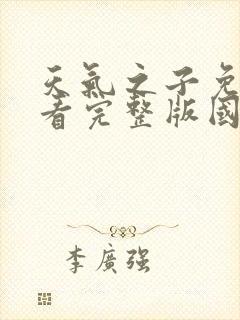 天氣之子免
看完整版國
李廣强